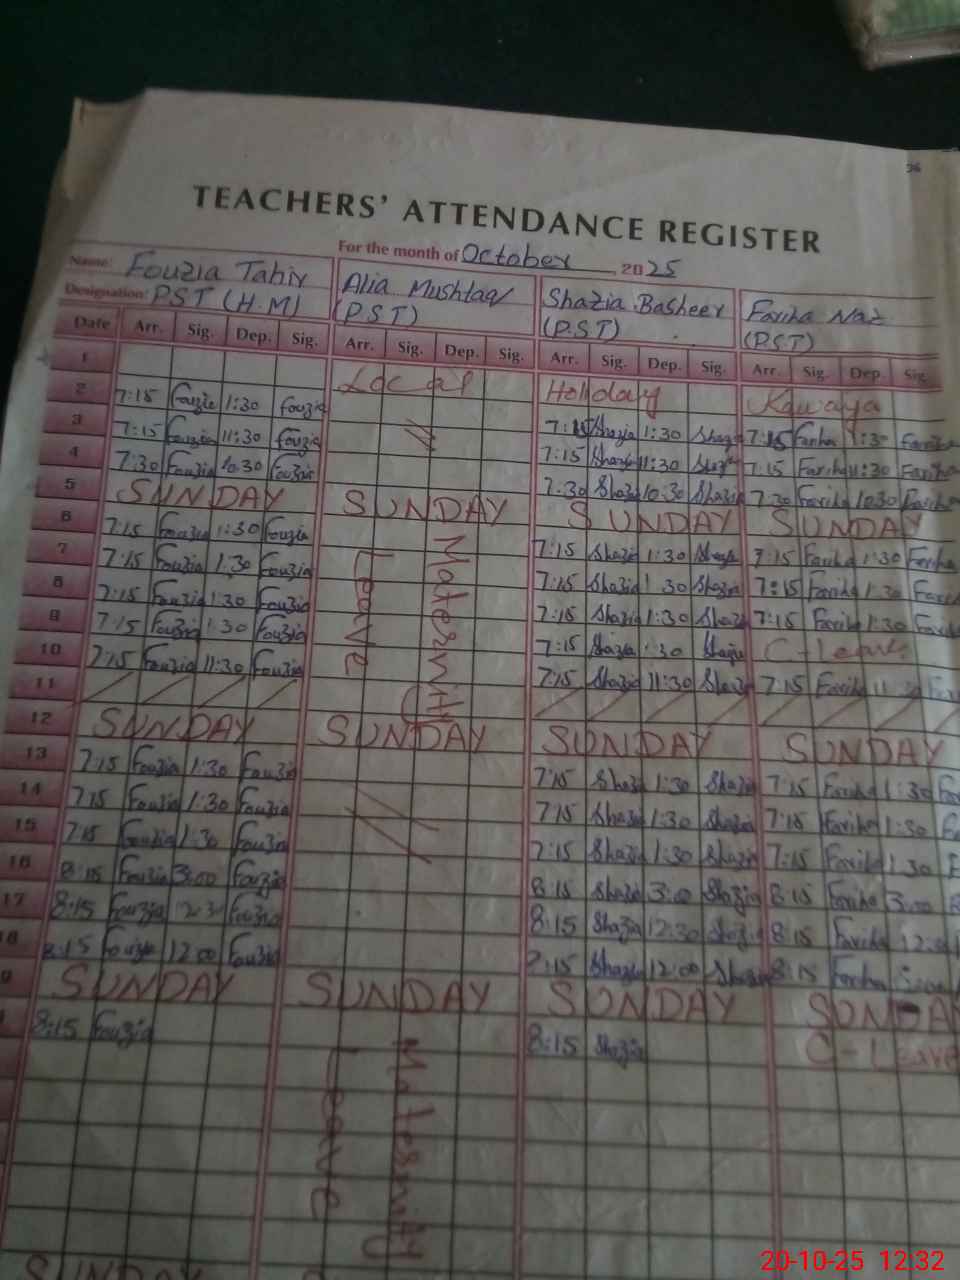 36
TEACHERS' ATTENDANCE REGISTER
For the month of October, 2025
Name: Fouzia Tahir Alia Mushtaq Shazia Basheer Fariha Naz
Designation: PST (H.M) (PST) (P.S.T) (P.S.T)
Date Arr. Sig. Dep. Sig. Arr. Sig. Dep. Sig. Arr. Sig. Dep. Sig. Arr. Sig. Dep. Sig.
1 Local Holiday
2 7:15 Fouzia 1:30 Fouzia 7:15 Shazia 1:30 Shazia 7:15 Fariha 1:30 Fariha
3 7:15 Fouzia 11:30 Fouzia 7:15 Shazia 11:30 Shazia 7:15 Fariha 11:30 Fariha
4 7:30 Fouzia 10:30 Fouzia 7:30 Shazia 10:30 Shazia 7:30 Fariha 10:30 Fariha
5 SUNDAY SUNDAY SUNDAY SUNDAY
6 7:15 Fouzia 1:30 Fouzia Maternity Leave 7:15 Shazia 1:30 Shazia 7:15 Fariha 1:30 Fariha
7 7:15 Fouzia 1:30 Fouzia 7:15 Shazia 1:30 Shazia 7:15 Fariha 1:30
8 7:15 Fouzia 1:30 Fouzia 7:15 Shazia 1:30 Shazia 7:15 Fariha 1:30
9 7:15 Fouzia 1:30 Fouzia 7:15 Shazia 1:30 Shazia C-Leave
10 7:15 Fouzia 11:30 Fouzia 7:15 Shazia 11:30 Shazia 7:15 Fariha 11:30
11
12 SUNDAY SUNDAY SUNDAY SUNDAY
13 7:15 Fouzia 1:30 Fouzia 7:15 Shazia 1:30 Shazia 7:15 Fariha 1:30
14 7:15 Fouzia 1:30 Fouzia 7:15 Shazia 1:30 Shazia 7:15 Fariha 1:30
15 7:15 Fouzia 1:30 Fouzia 7:15 Shazia 1:30 Shazia 7:15 Fariha 1:30
16 8:15 Fouzia 3:00 Fouzia 8:15 Shazia 3:00 Shazia 8:15 Fariha 3:00
17 8:15 Fouzia 12:30 Fouzia 8:15 Shazia 12:30 Shazia 8:15 Fariha 12:30
18 8:15 Fouzia 12:00 Fouzia 8:15 Shazia 12:00 Shazia 8:15 Fariha
9 SUNDAY SUNDAY SUNDAY SUNDAY
8:15 Fouzia Maternity Leave 8:15 Shazia C-Leave
SUNDAY
20-10-25 12:32